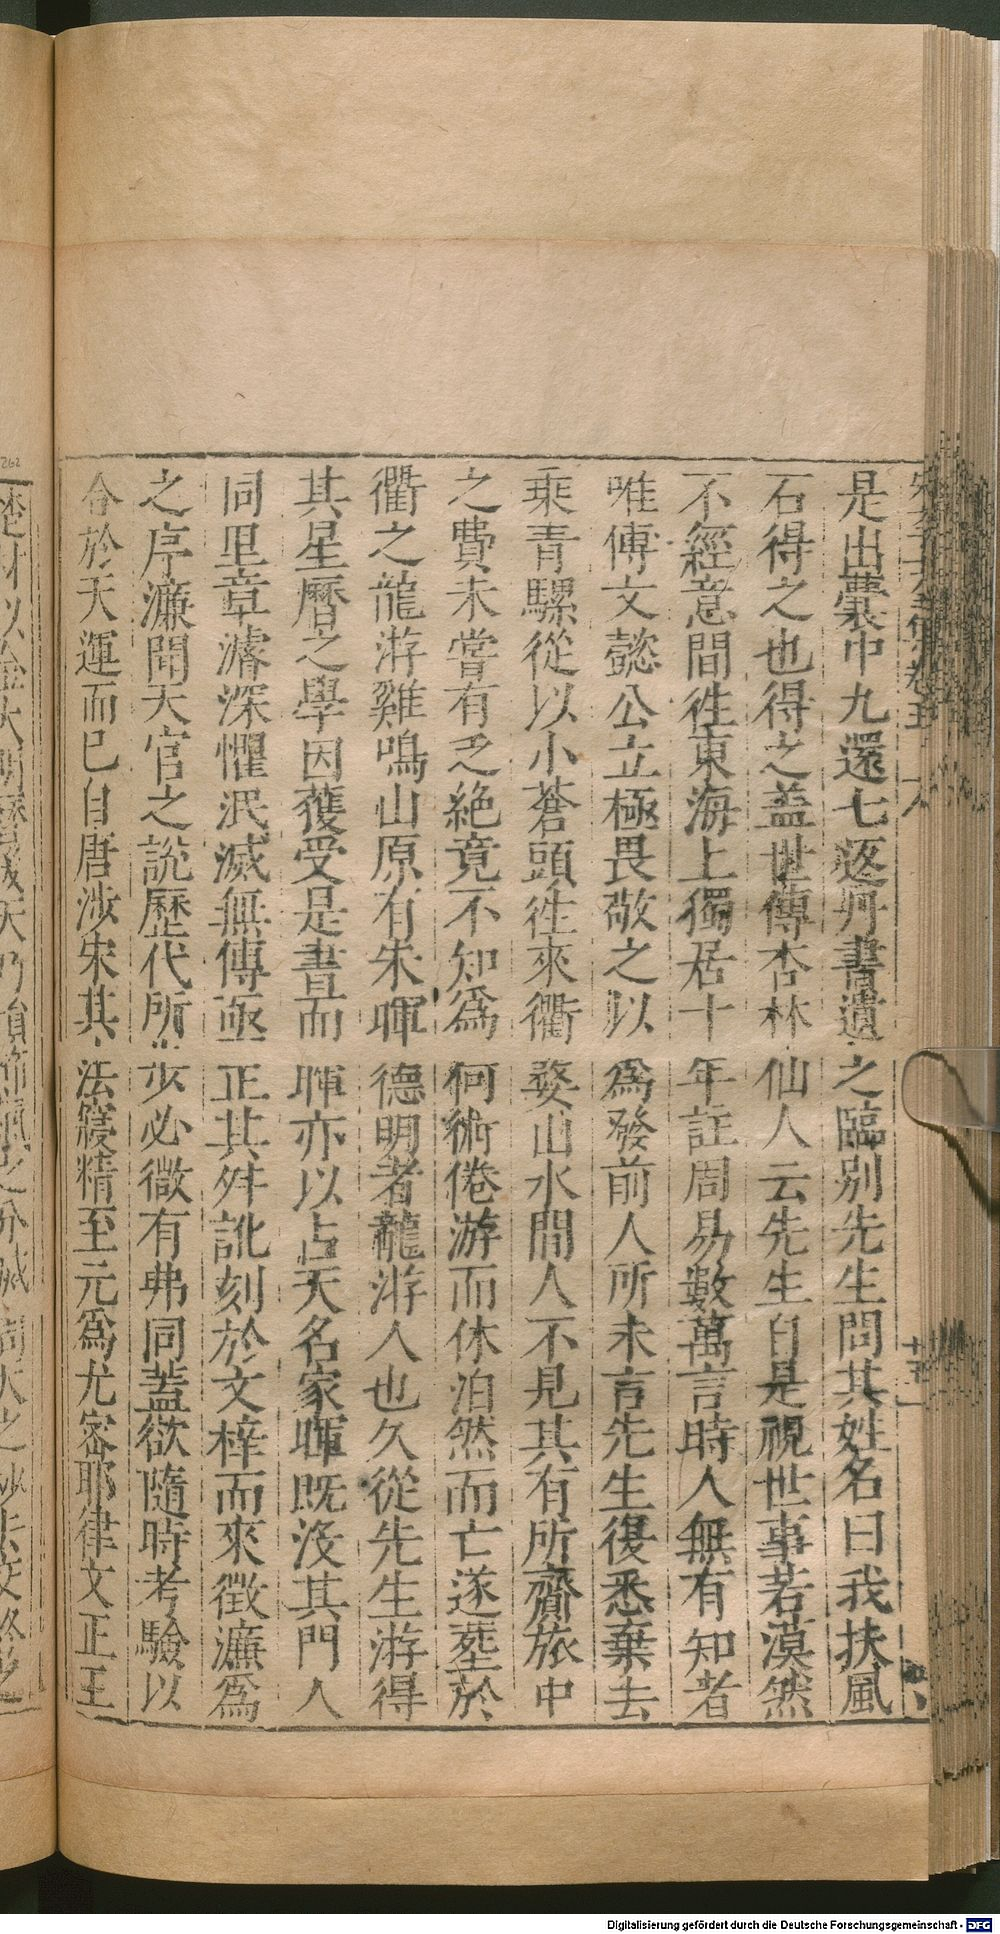 是出囊中九還七返丹書遺之臨別先生問其姓名曰我扶風
石得之也得之蓋世傳杏林仙人云先生自是視世事若漠然
不經意間徃東海上獨居十年註周易數萬言時人無有知者
唯傅文懿公立極畏敬之以爲發前人所未言先生復悉棄去
乗青騾從以小蒼頭徃來衢婺山水間人不見其有所齎旅中
之費未嘗有乏絶竟不知爲何術倦游而休泊然而亡遂塟於
衢之龍游雞鳴山原有朱暉德明者龍游人也久從先生游得
其星曆之學因獲受是書而暉亦以占天名家暉既没其門人
同里章濬深懼泯滅無傳亟正其舛訛刻於文梓而來徵濂爲
之序濂聞天官之説歷代所步必微有弗同蓋欲隨時考驗以
合於天運而已自唐涉宋其法寖精至元爲尤密耶律文正王
十五
Digitalisierung gefördert durch die Deutsche Forschungsgemeinschaft - DFG